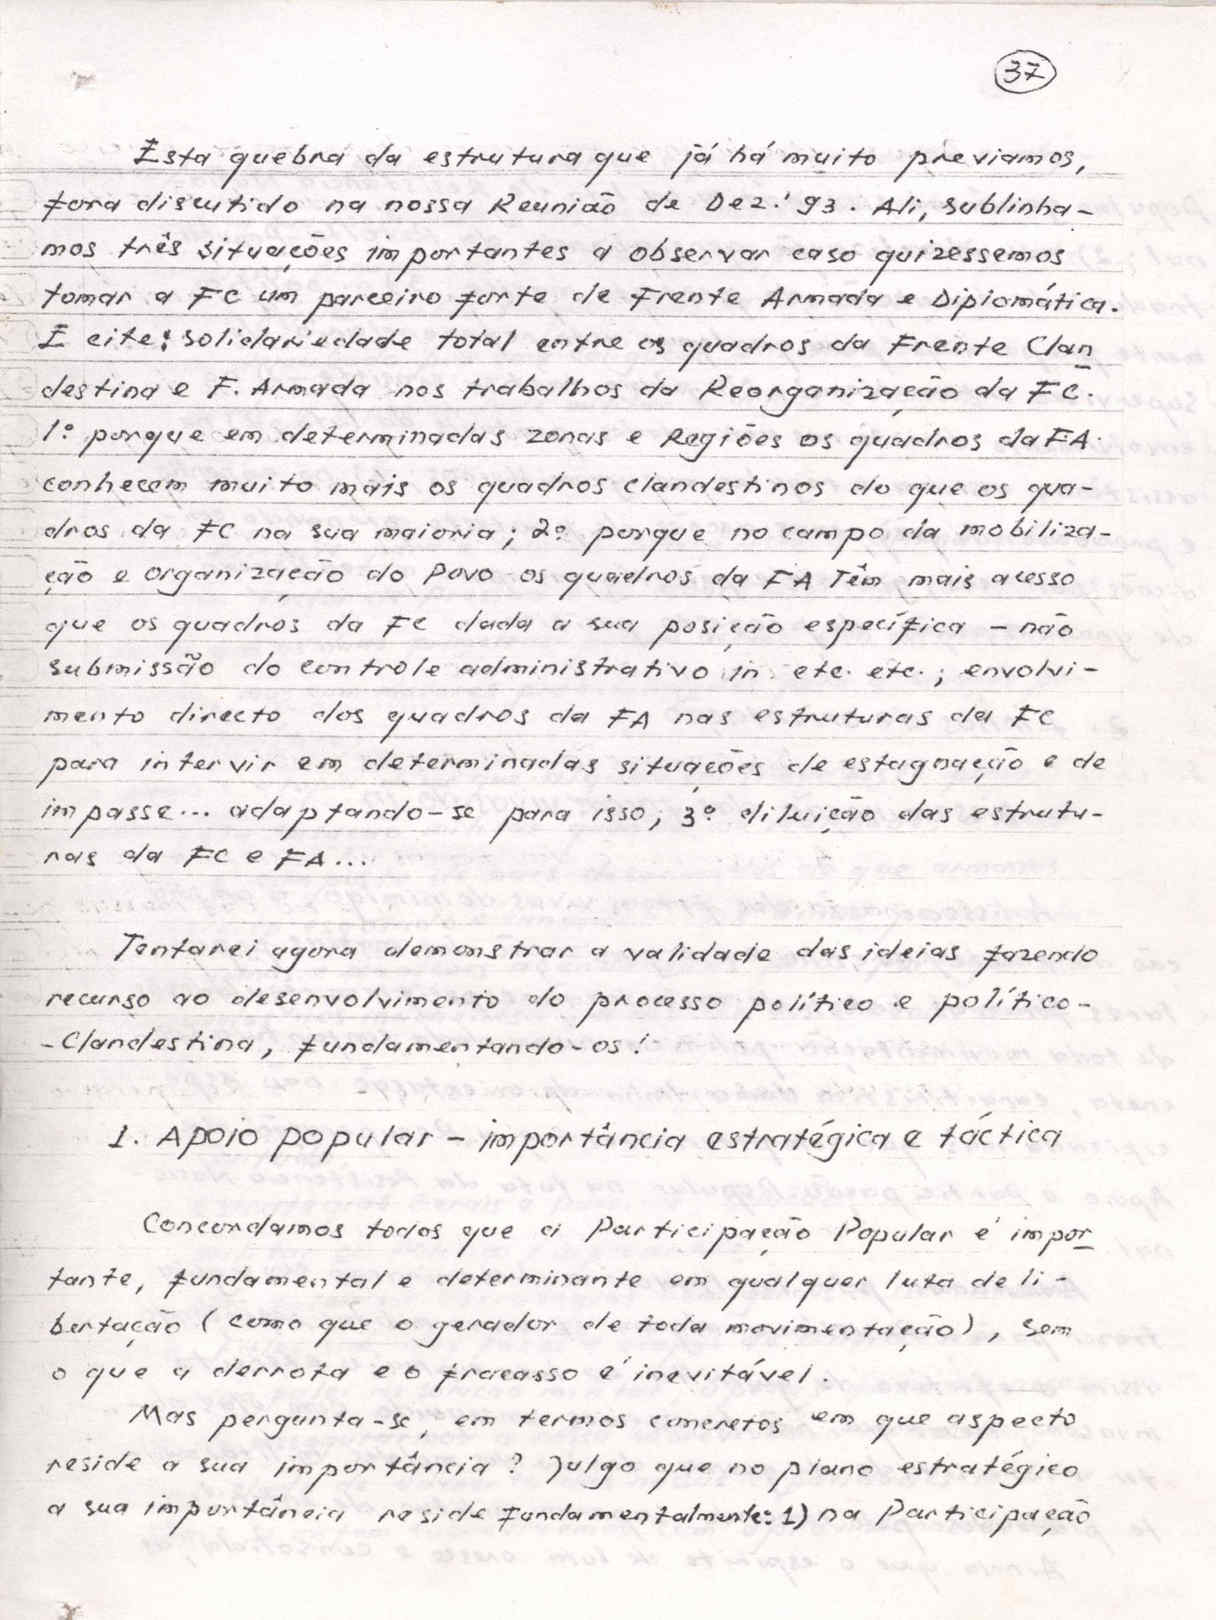 37
Esta quebra da estrutura que já há muito previamos,
fora discutido na nossa Reunião de Dez.' 93. Ali, sublinha-
mos três situações importantes a observar caso quizessemos
tomar a FC um parceiro forte de Frente Armada e Diplomática.
E cite: solidariedade total entre os quadros da Frente Clan
destina e F. Armada nos trabalhos da Reorganização da FC.
1º porque em determinadas zonas e Regiões os quadros da FA.
conhecem muito mais os quadros clandestinos do que os qua-
dros da FC na sua maioria; 2º porque no campo da mobiliza-
ção e organização do Povo os quadros da FA Têm mais acesso
que os quadros da FC dada a sua posição específica - não
submissão do controle administrativo in etc. etc.; envolvi-
mento directo dos quadros da FA nas estruturas da FC
para intervir em determinadas situações de estagnação e de
impasse... adaptando-se para isso; 3º diluição das estrutu-
ras da FC e FA...
Tentarei agora demonstrar a validade das ideias fazendo
recurso ao desenvolvimento do processo político e político-
-Clandestina, fundamentando-os!
1. Apoio popular - importância estratégica e táctica
Concordamos todos que a Participação Popular é impor
tante, fundamental e determinante em qualquer luta de li-
bertação (como que o gerador de toda movimentação), sem
o que a derrota e o fracasso é inevitável.
Mas pergunta-se, em termos concretos em que aspecto
reside a sua importância? Julgo que no plano estratégico
a sua importância reside fundamentalmente: 1) na Participação